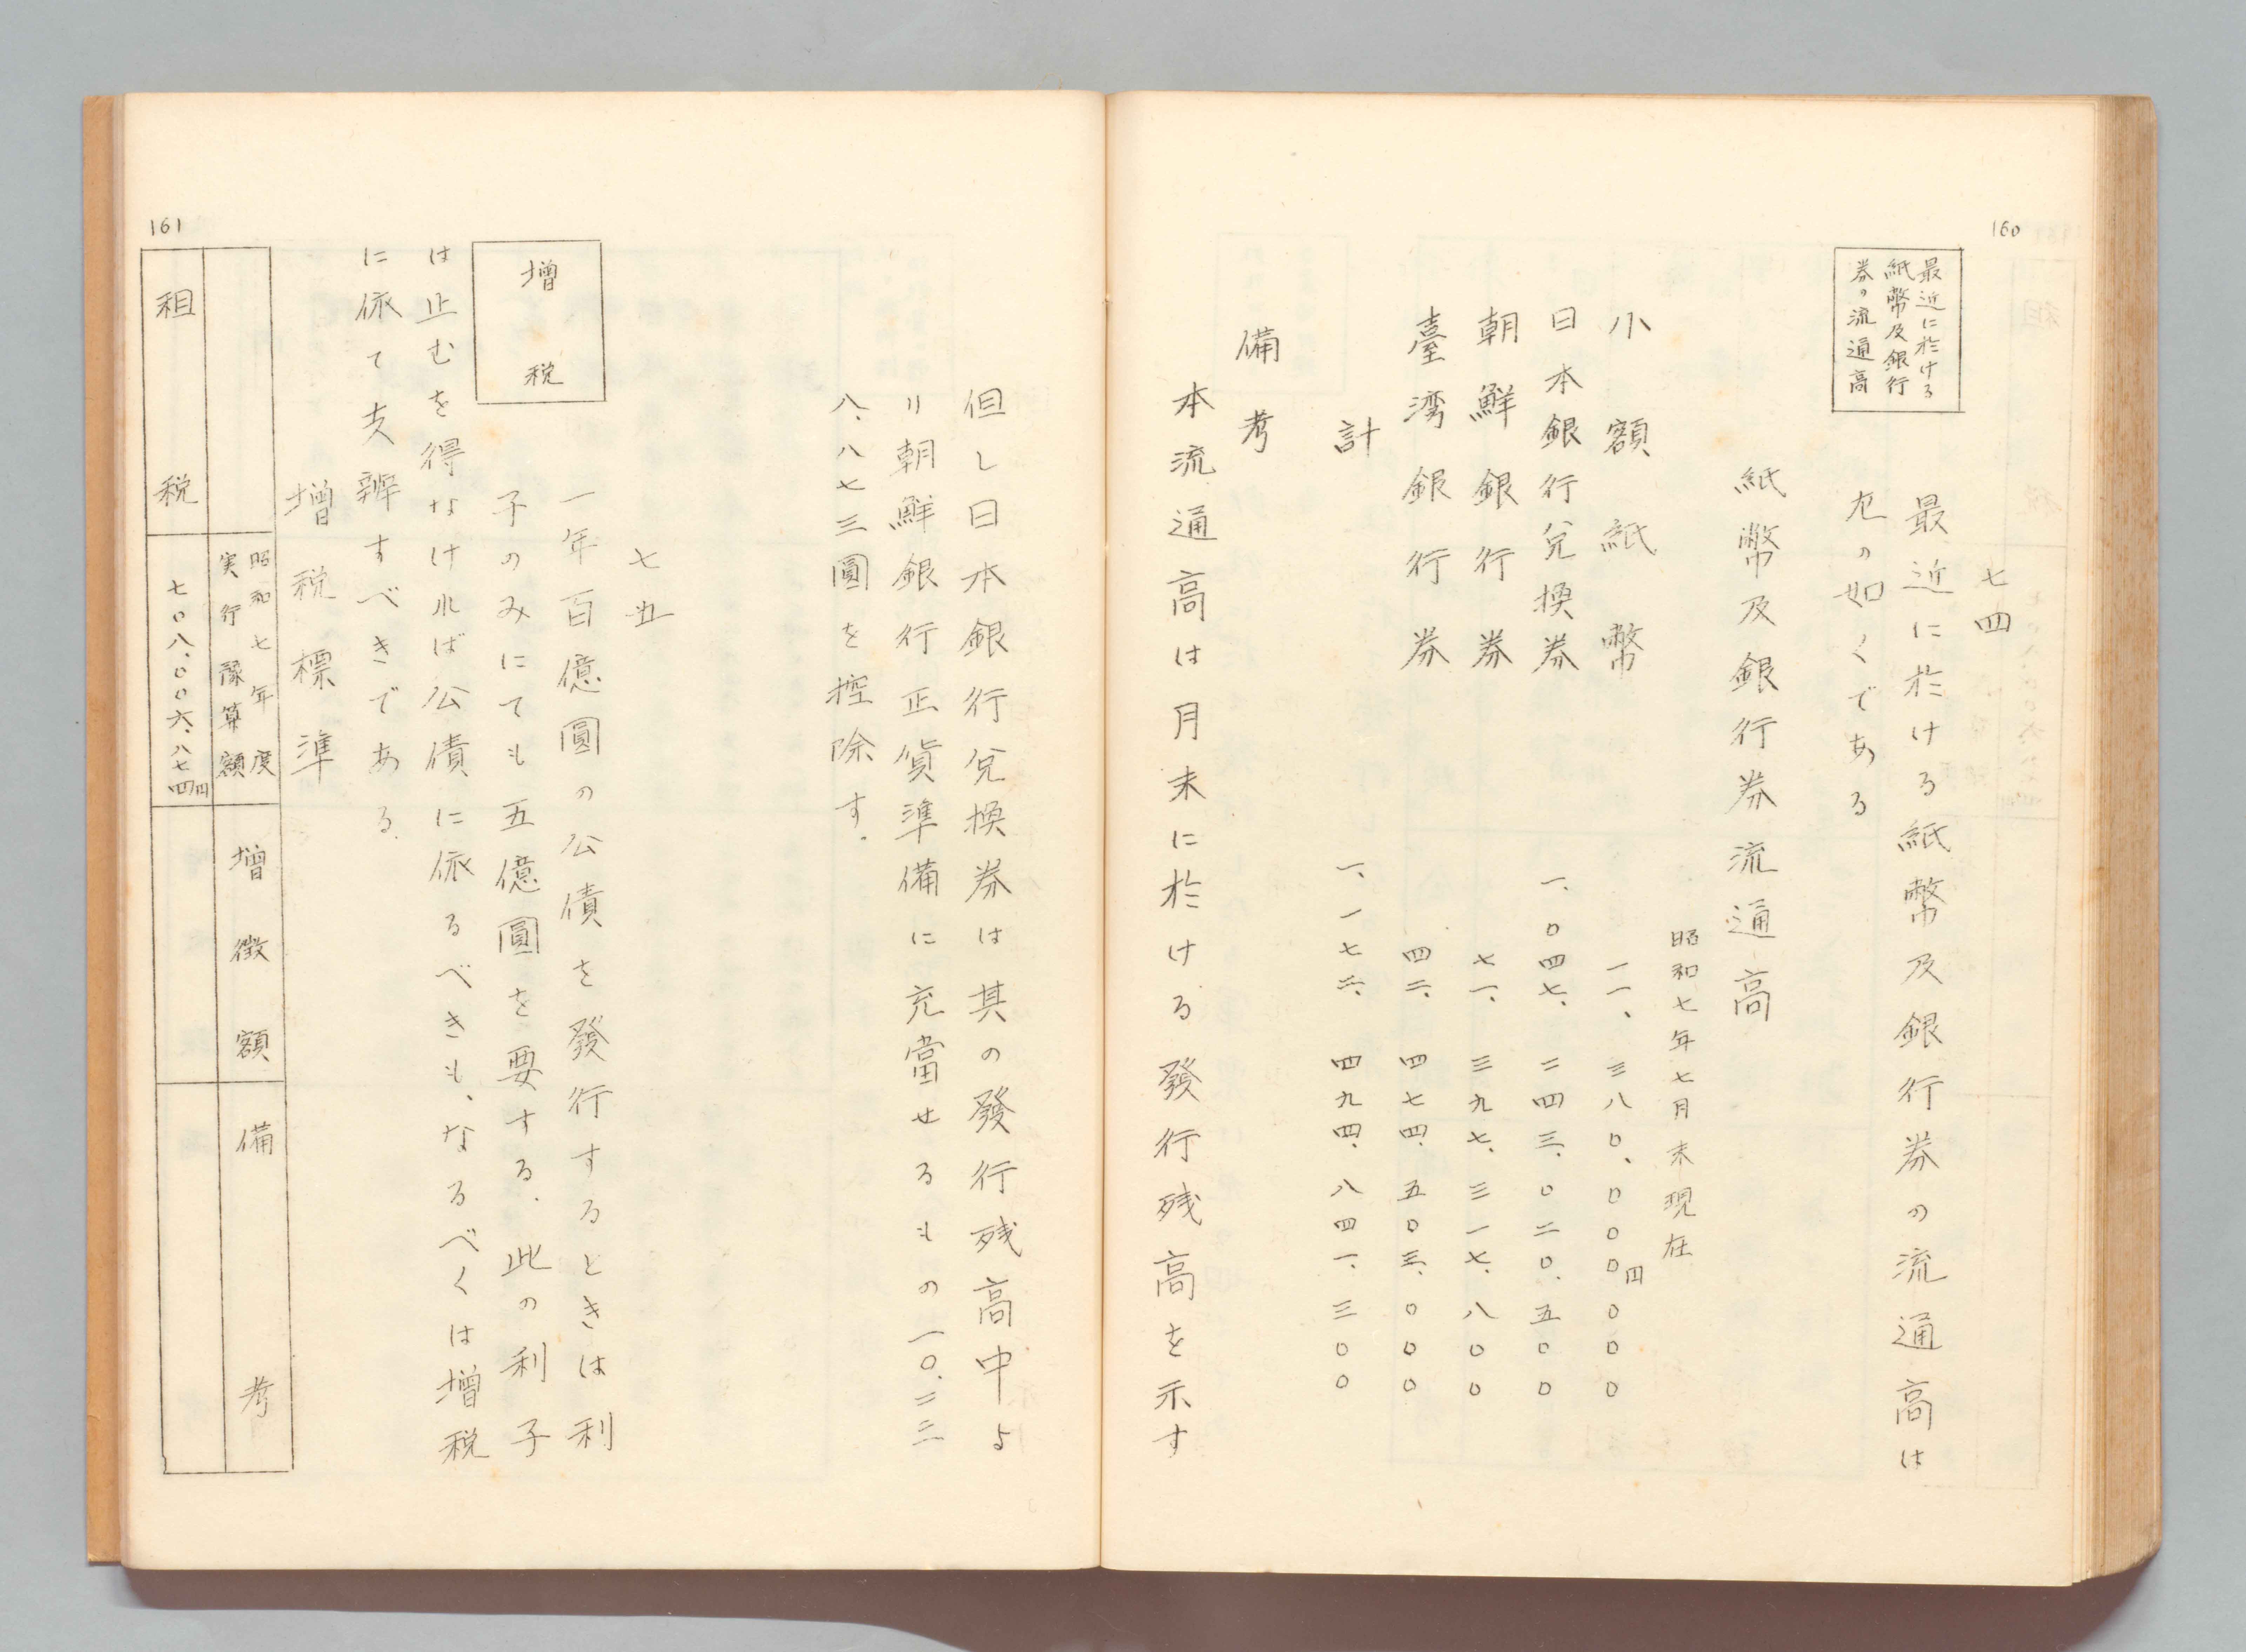 160
最近に於ける
紙幣及銀行
券の流通高
七四
最近に於ける紙幣及銀行券の流通高は
左の如くである
紙幣及銀行券流通高
昭和七年七月末現在
小額紙幣 一一、三八〇、〇〇〇円〇〇〇
日本銀行兌換券 一、〇四七、二四三、〇二〇、五〇〇
朝鮮銀行券 七一、三九七、三一七、八〇〇
臺湾銀行券 四二、四七四、五〇三、〇〇〇
計 一、一七二、四九四、八四一、三〇〇
備考
本流通高は月末に於ける發行残高を示す
但し日本銀行兌換券は其の發行残高中よ
り朝鮮銀行正貨準備に充當せるもの一〇、二三
八、八七三圓を控除す。
七五
増税
一年百億圓の公債を發行するときは利
子のみにても五億圓を要する。此の利子
は止むを得なければ公債に依るべきも、なるべくは増税
に依て支辨すべきである。
増税標準
161
昭和七年度
実行豫算額
増徴額
備考
租税
七〇八、〇〇六、八七四円